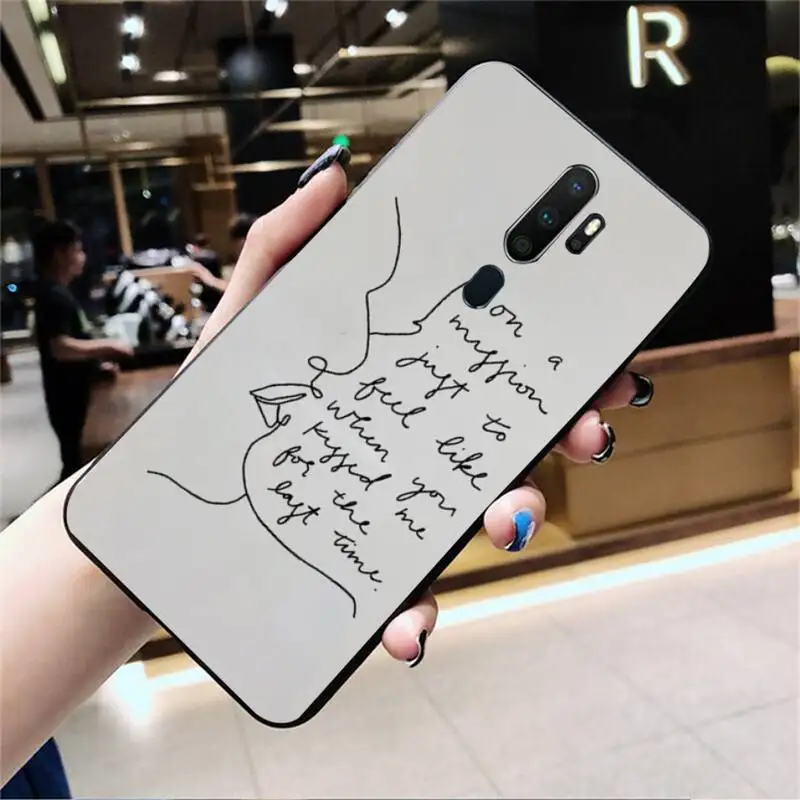 R
on a
mission
just to
feel like
when you
kissed me
for the
last time.